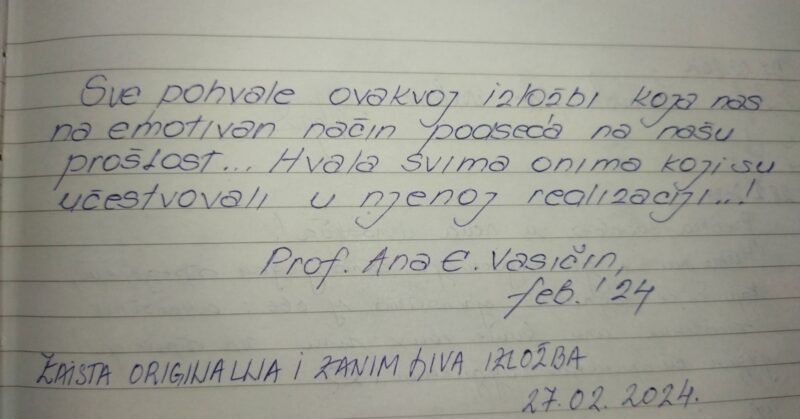 Sve pohvale ovakvoj izložbi koja nas
na emotivan način podseća na našu
prošlost... Hvala svima onima koji su
učestvovali u njenoj realizaciji...!
Prof. Ana E. Vasičin,
feb. '24
ZAISTA ORIGINALNA I ZANIMЉIVA IZLOŽBA
27.02.2024.